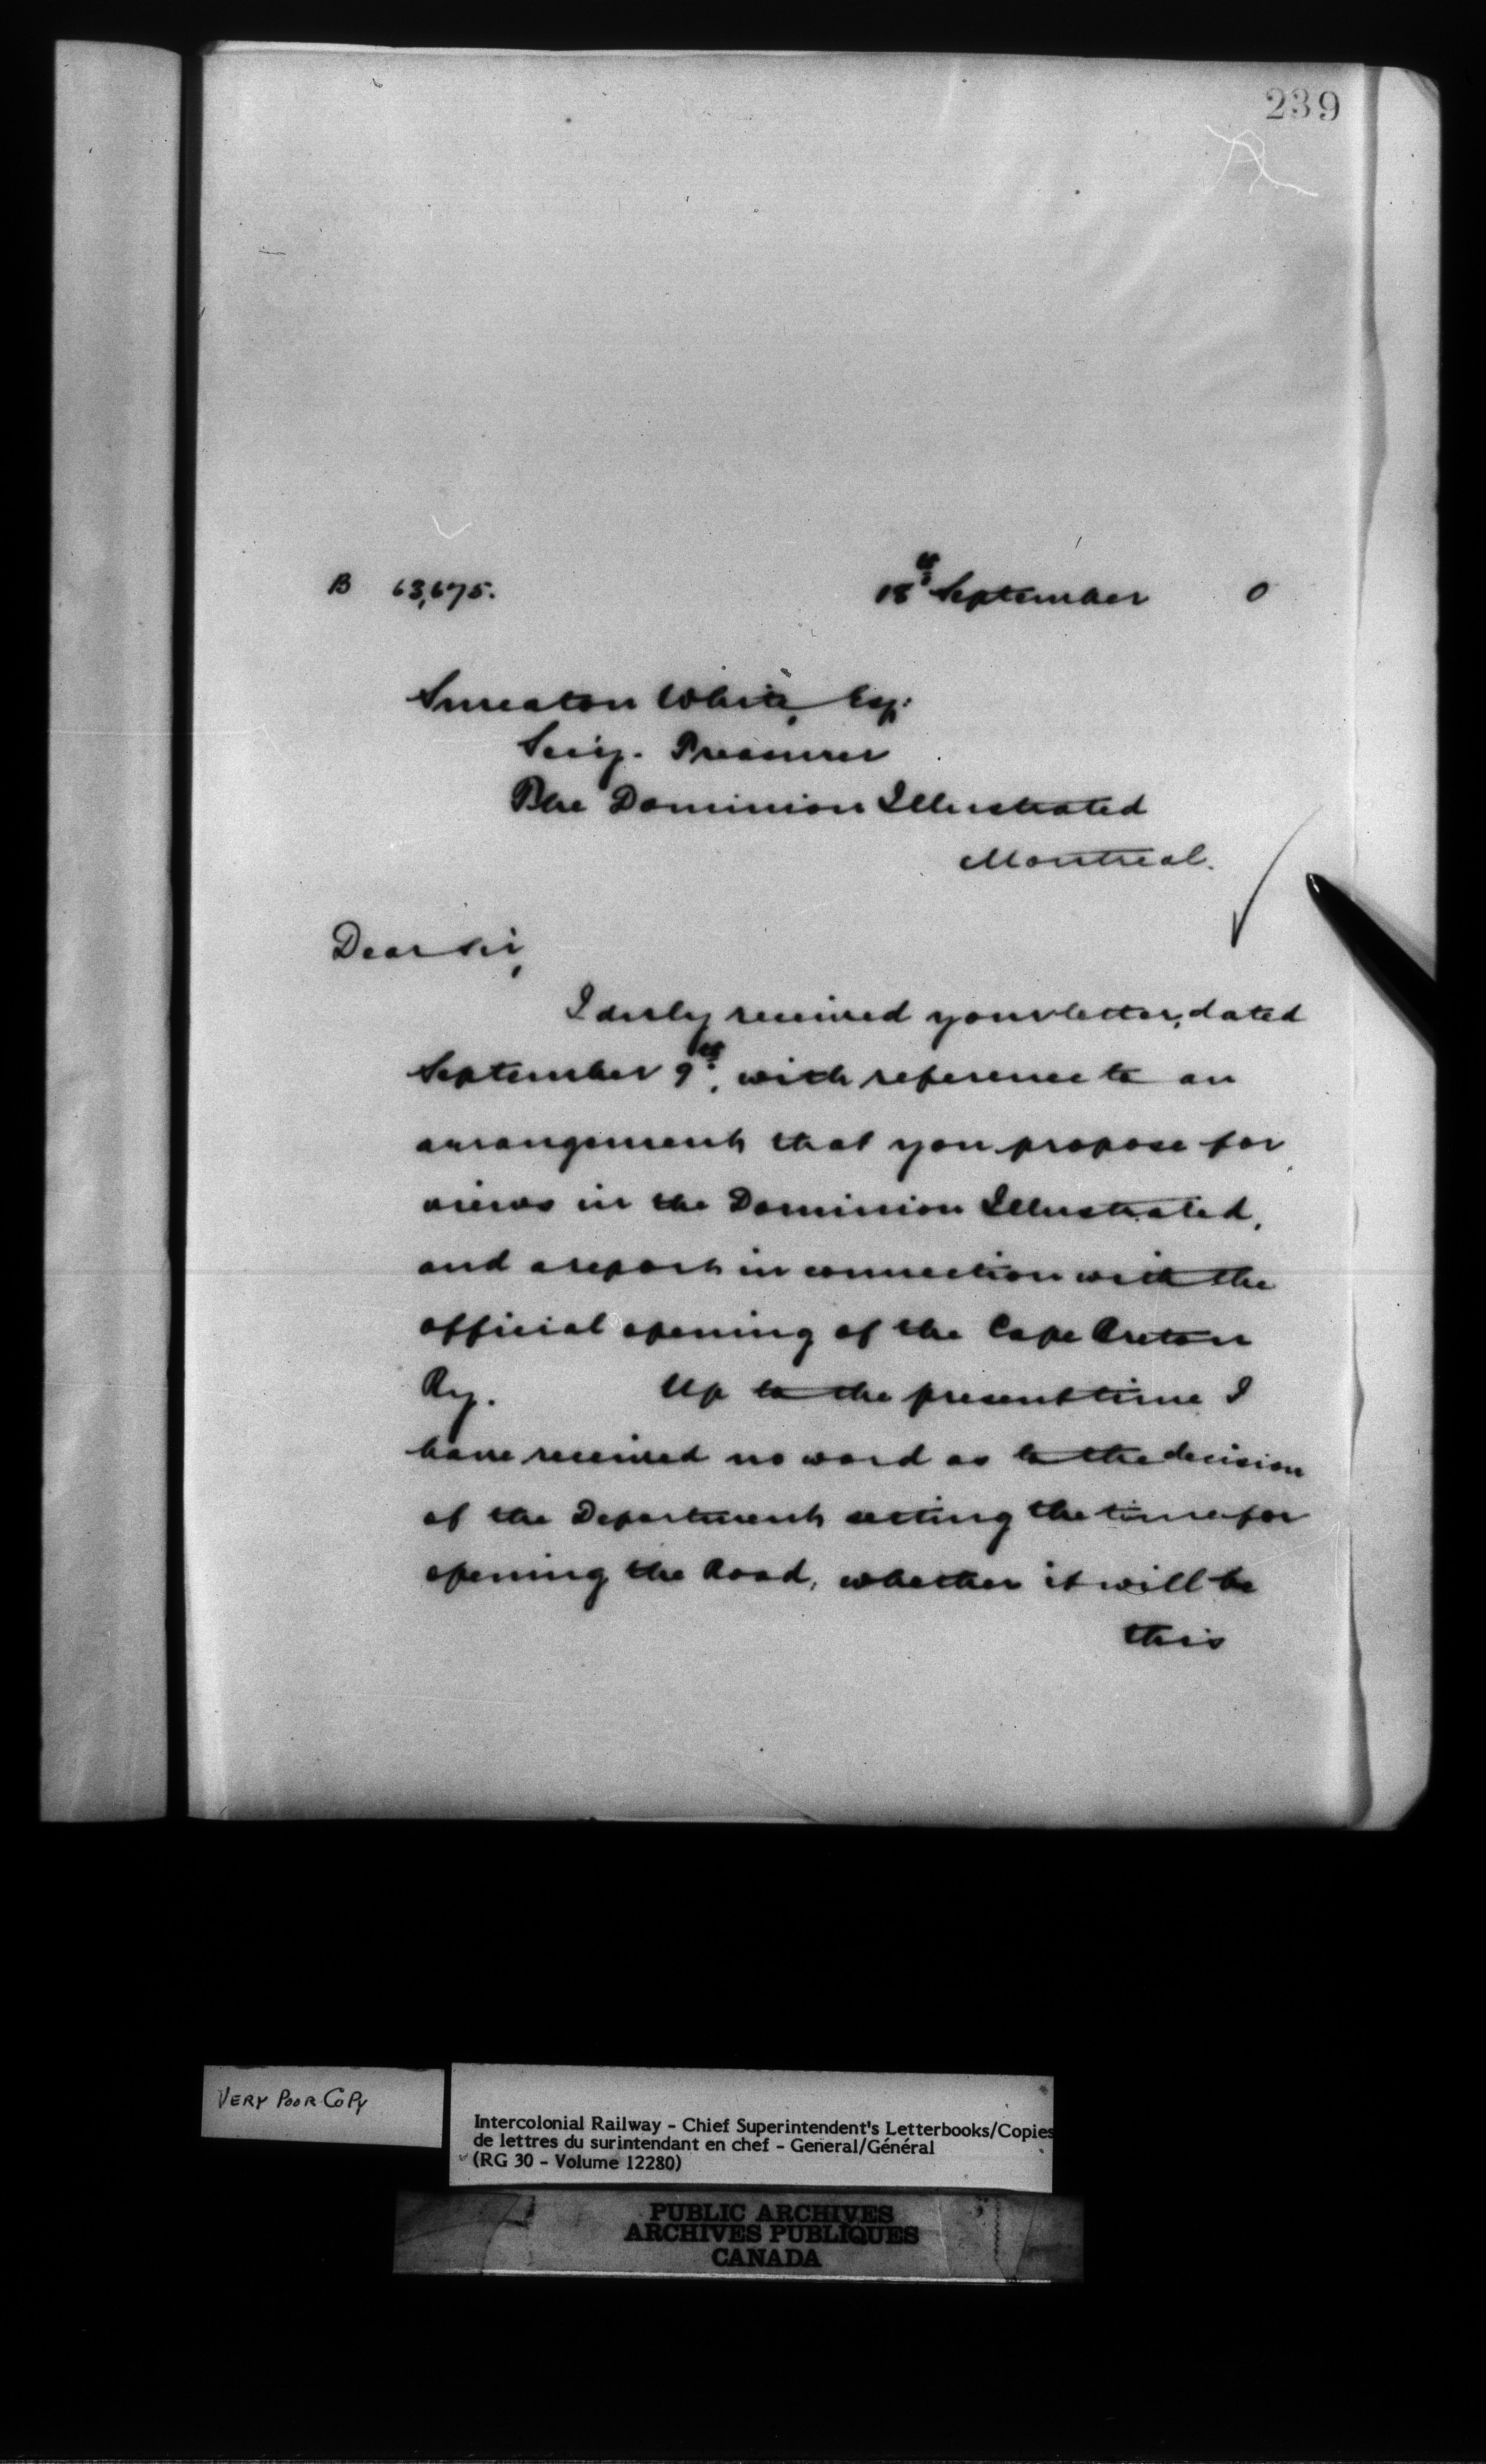 239
B 63,675. 18th September 0
Smeaton White, Esq.
Secy. Treasurer
The Dominion Illustrated
Montreal.
Dear Sir,
I duly received your letter, dated
September 9th, with reference to an
arrangement that you propose for
views in the Dominion Illustrated,
and a report in connection with the
official opening of the Cape Breton
Ry. Up to the present time I
have received no word as to the decision
of the Department setting the time for
opening the Road, whether it will be
this
VERY POOR COPY
Intercolonial Railway - Chief Superintendent's Letterbooks/Copies
de lettres du surintendant en chef - General/Général
(RG 30 - Volume 12280)
PUBLIC ARCHIVES
ARCHIVES PUBLIQUES
CANADA